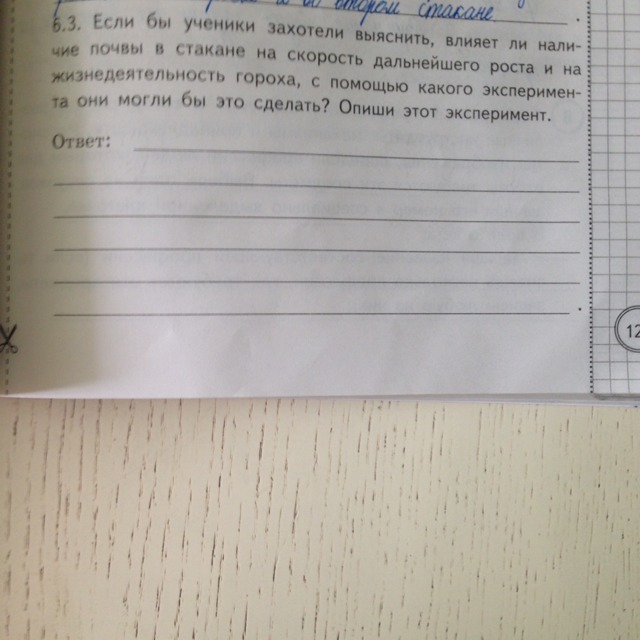 во втором стакане .
6.3. Если бы ученики захотели выяснить, влияет ли нали-
чие почвы в стакане на скорость дальнейшего роста и на
жизнедеятельность гороха, с помощью какого эксперимен-
та они могли бы это сделать? Опиши этот эксперимент.
Ответ:
12